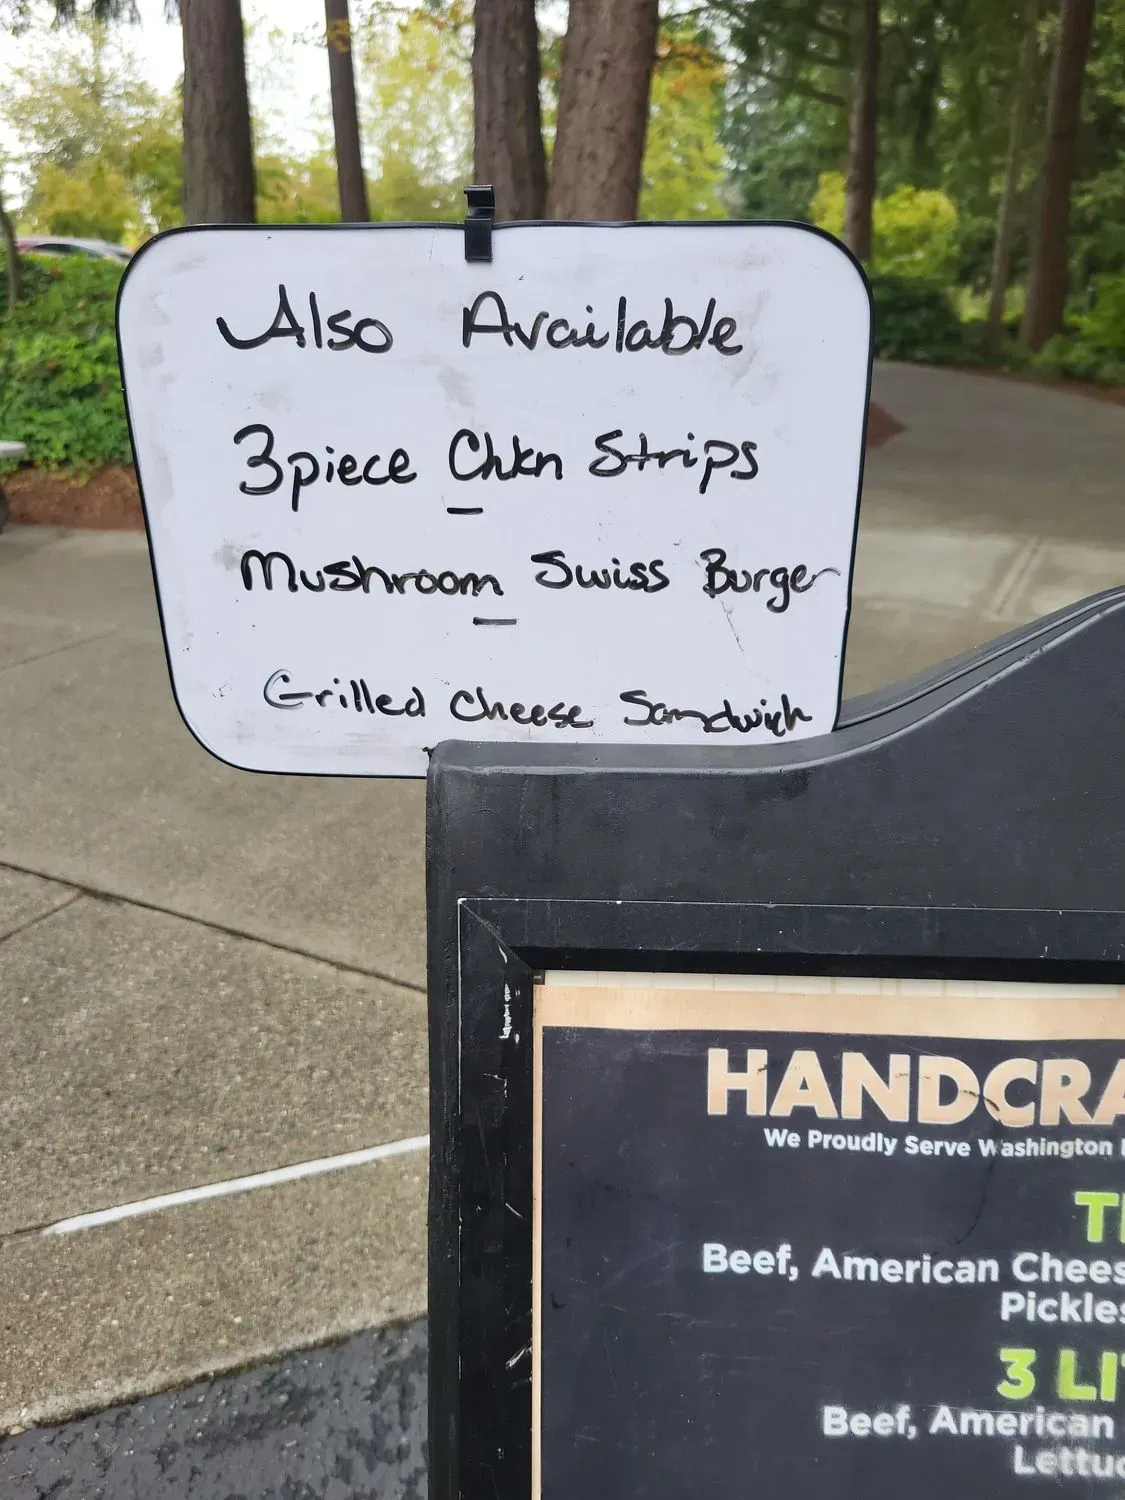 Also Available
3 piece Chkn Strips
-
Mushroom Swiss Burger
-
Grilled Cheese Sandwich
HANDCRA
We Proudly Serve Washington
Beef, American Chees
Pickles
3 LI
Beef, American
Lettuc